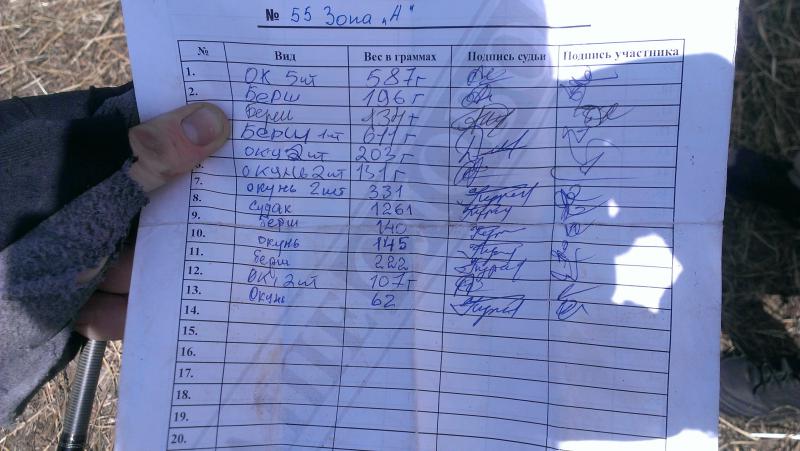 № 55 Зона „А"
№ Вид Вес в граммах Подпись судьи Подпись участника
1. ОК 5шт 587г
2. Берш 196г
Берш 134г
Берш 1шт 611г
оку 2шт 203г
окунь 2шт 131г
7. окунь 2шт 331
8. Судак 1261
9. Берш 140
10. окунь 145
11. берш 222
12. ОК. 2шт 107г
13. Окунь 62
14.
15.
16.
17.
18.
19.
20.